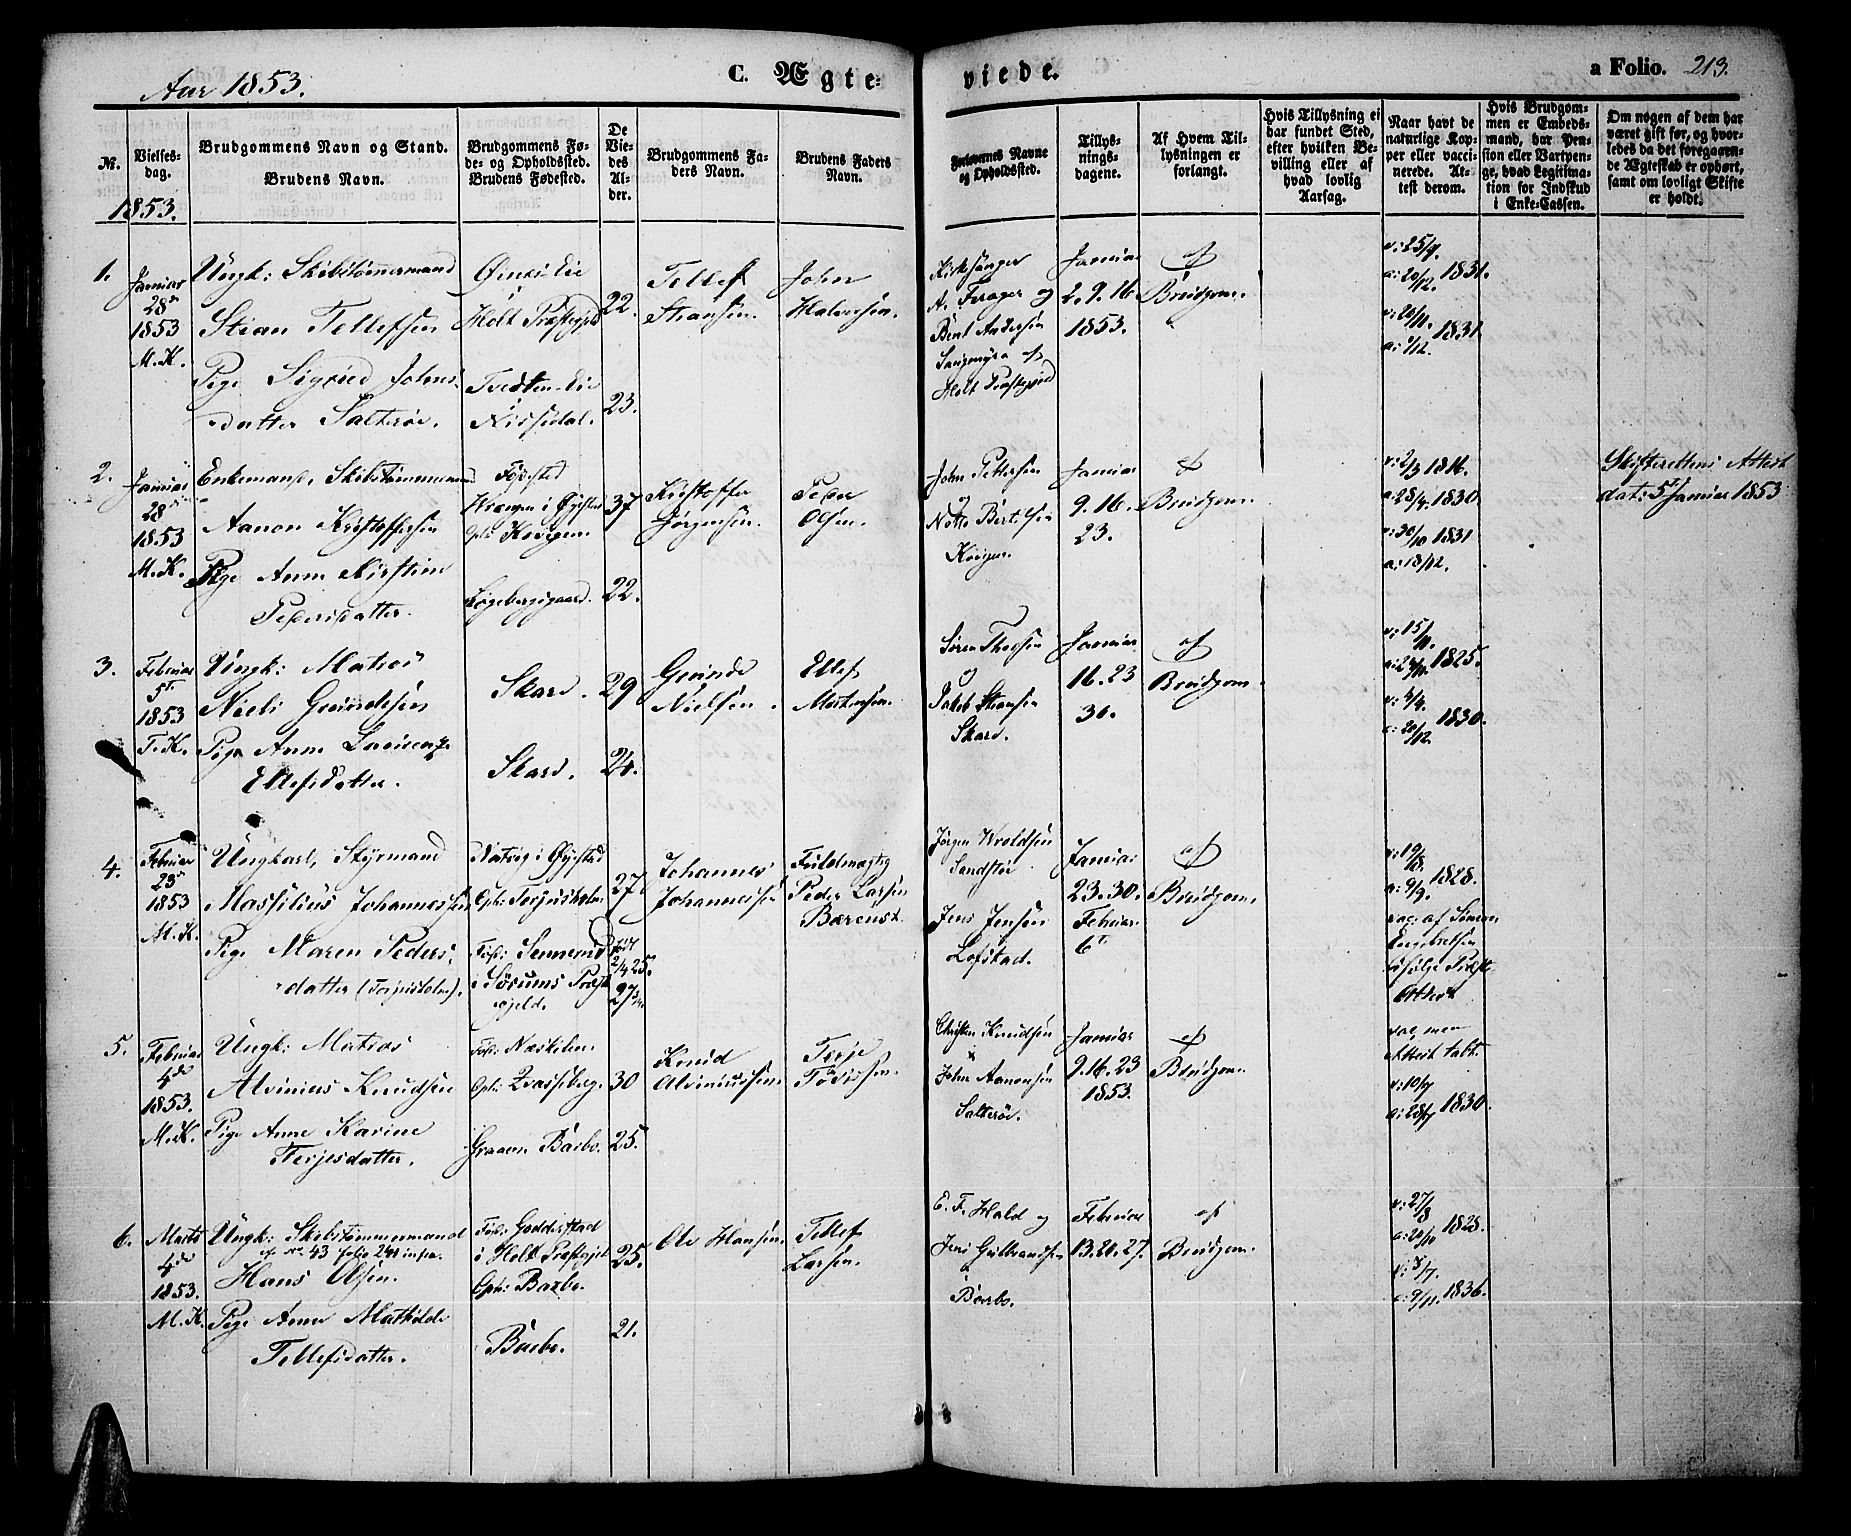 Aar 1853.
C. Ægte=
viede.
a Folio. 213.
No.
Vielses-
dag.
Brudgommens Navn og Stand.
Brudens Navn.
Brudgommens Fø-
de- og Opholdssted.
Brudens Fødested.
De
Vie-
des
Al-
der.
Brudgommens Fa-
ders Navn.
Brudens Faders
Navn.
Forlovernes Navne
og Opholdssted.
Tillys-
nings-
dagene.
Af Hvem Til-
lysningen er
forlangt.
Hvis Tillysning ei
har fundet Sted,
efter hvilken Be-
villing eller af
hvad lovlig
Aarsag.
Naar havt de
naturlige Kop-
per eller vacci-
nerede. At-
test derom.
Hvis Brudgom-
men er Embeds-
mand, har Pen-
sion eller Vartpen-
ge, hvad Legitima-
tion for Indskud
i Enke-Cassen.
Om nogen af dem har
været gift før, og hvor-
ledes da det foregaaen-
de Ægteskab er ophørt,
samt om lovligt Skifte
er holdt.
1853.
1.
Januar
28de
1853
M.K.
Ungk: Skibstømmermand
Stian Tellefsen
Pige Sigrid Johns-
datter Salterøe.
Holt Præstegjeld
Tvedten Eie
Nissedal.
22.
23.
Tellef
Stiansen.
John
Halvorsen.
Kirkesanger
A. Ferager og
Bent Andersen
af
Holt Præstegjeld
Januar
2. 9. 16.
1853.
af
Brudgom.
v: 25/9.
a: 20/12. 1831.
v: 20/11.
a: 1/12. 1831.
2.
Januar
28de
1853
M.K.
Enkemand, Skibstømmermand
Aanon Kristoffersen
Pige Anne Kirstine
Pedersdatter.
Fødested
i Øyestad
Løgebergsgaard.
37
22.
Kristoffer
Jørgensen.
Peder
Olsen.
John Pettersen
og
Notto Bertelsen
Januar
9. 16.
23.
af
Brudgom.
v: 2/3 1816.
a: 28/4 1830.
v: 30/10 1831
a: 18/12.
Skifterettens Attest
dat: 5t Januar 1853
3.
Februar
5te
1853
T.K.
Ungk: Matros
Niels Gundesen
Pige Anne
Ellefsdatter.
Skard.
Skard.
29
24.
Gunde
Nielsen.
Ellef
Mortensen.
Søren Thorsen
og
Jakob Stiansen
Skard.
Januar
16. 23
30.
af
Brudgom.
v: 15/11.
1825.
v: 4/4.
a: 20/12. 1830.
4.
Februar
23de
1853
M.K.
Ungkarl, Styrmand
Massilius Johannessen
Pige Maren Peders-
datter (Torjusholm).
Natvig i Øyestad
Oph: Torjusholm
Fød: Sennerud
i Sørums Præste-
gjeld.
27
født
2/4 25.
27 3/4
Johannes
Johannessen
Fuldmægtig
Peder Larsen
Bærenst.
Jørgen Wroldsen
Sandstø
Jens Jensen
Lofstad.
Januar
23. 30.
Februar
6te
af
Brudgom.
v: 19/8.
a: 9/9. 1828.
vac: af Simon
Engebretsen
ifølge Præste
Attest
5.
Februar
4de
1853.
M.K.
Ungk: Matros
Alvinius Knudsen
Pige Anne Karine
Terjesdatter.
Fød: Næskilen
Oph:
Graaen Barbo.
30
25.
Knud
Alviniussen.
Terje
Christen Knudsen
&
John Aanonsen
Salterøe.
Januar
9. 16. 23
1853.
af
Brudgom.
vac, men
Attest tabt.
v: 10/7
1830.
6.
Marts
4de
1853.
M.K.
Ungk: Skibstømmermand
cf No. 43 folio 241 infra.
Hans Olsen.
Pige Anne Mathilde
Tellefsdatter.
Fød: Goderstad
i Holt Præstegjeld
Oph: Barbo.
Barbo.
25.
21.
Ole Hansen.
Tellef
Larsen.
E. F. Hald og
Jens Gulbrandsen
Barbo.
Februar
13. 20. 27.
af
Brudgom.
v: 27/8
a: 20/10 1828.
1836.